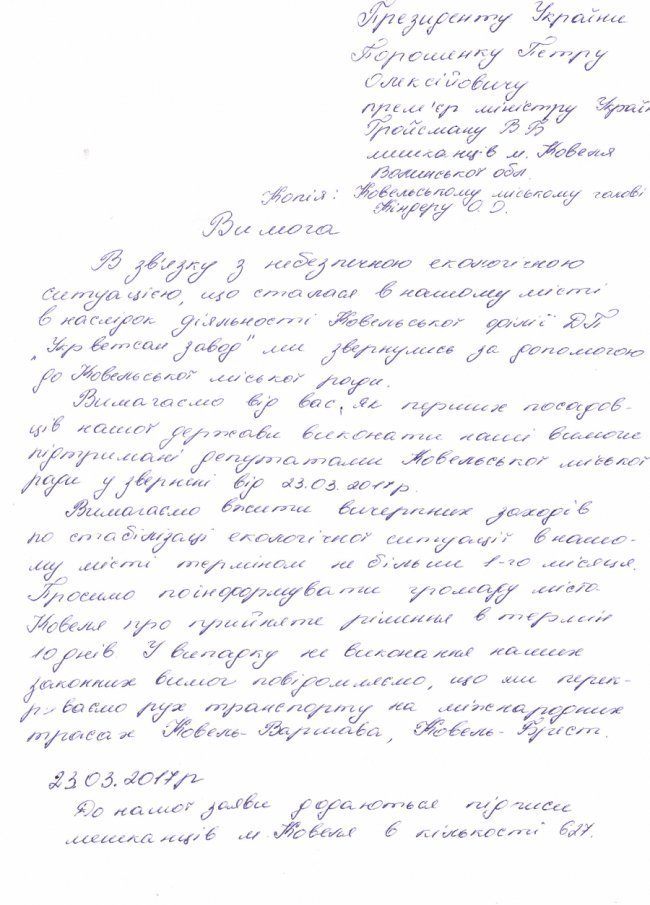 Президенту України
Порошенку Петру
Олексійовичу
прем'єр міністру Украї
Гройсману В Б
мешканців м. Ковеля
Волинської обл.
Копія: Ковельському міському голові
Кіндеру О.Д.
Вимога
В зв'язку з небезпечною екологічною
ситуацією, що сталася в нашому місті
в наслідок діяльності Ковельської філії ДП
„Укрветсан завод" ми звернулись за допомогою
до Ковельської міської ради.
Вимагаємо від вас, як перших посадов-
ців нашої держави виконати наші вимоги
підтримані депутатами Ковельської міської
ради у звернені від 23.03.2017р.
Вимагаємо вжити вичерпних заходів
по стабілізації екологічної ситуації в нашо-
му місті терміном не більши 1-го місяця.
Просимо поінформувати громаду місто
Ковеля про прийняте рішення в термін
10 днів. У випадку не виконання наших
законних вимог повідомляємо, що ми перек-
риваємо рух транспорту на міжнародних
трасах Ковель-Варшава, Ковель-Брест.
23.03.2017р
До нашої заяви додаються підписи
мешканців м. Ковеля в кількості 627.